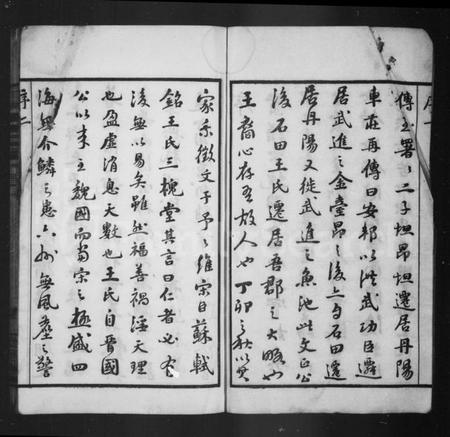 序一
傳至署署二子坦昂坦遷居丹陽
車莊再傳曰安邦以洪武功臣遷
居武進之金臺昂之後上勻石田遷
居丹陽又徙武進之魚池此文正公
後石田王氏遷居吾郡之大畧也
王裔心存吾故人也丁卯之秋以其
家乘徵文于予予維宋曰蘇軾
銘王氏三槐堂其言曰仁者必有
後無以易矣雖然福善禍淫天理
也盈虛消息天數也王氏自晉國
公以來至魏國而當宋之極盛四
海無介鱗之患六州無風塵之警
序二